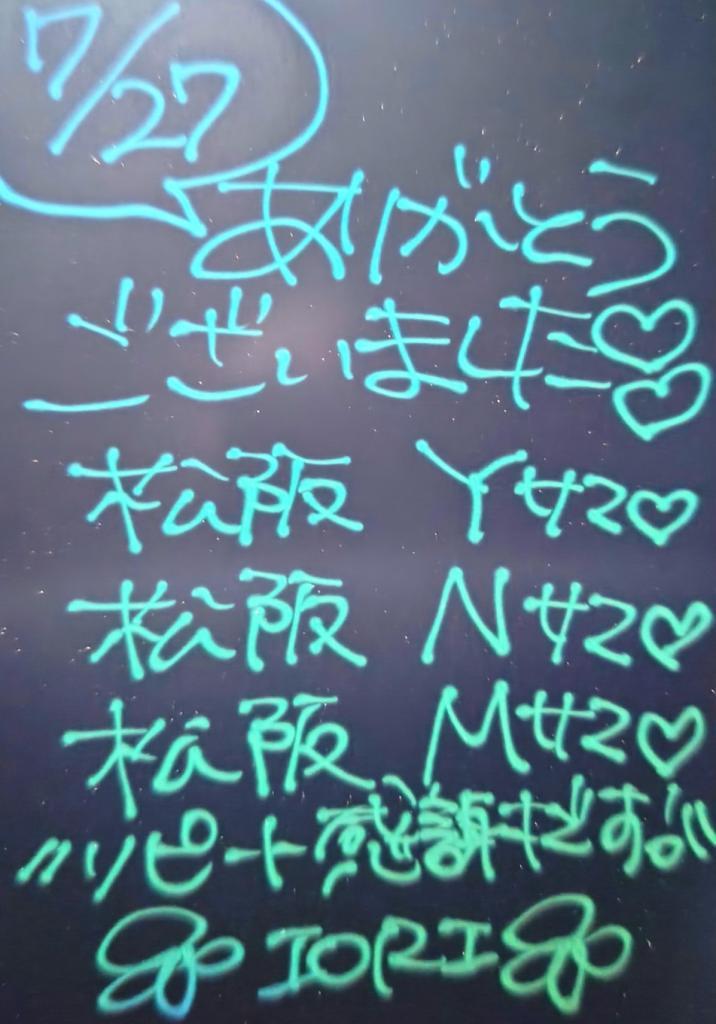 7/27
ありがとう
ございました♡♡
松阪 Yサマ♡
松阪 Nサマ♡
松阪 Mサマ♡
リピート感謝です!!
IORI